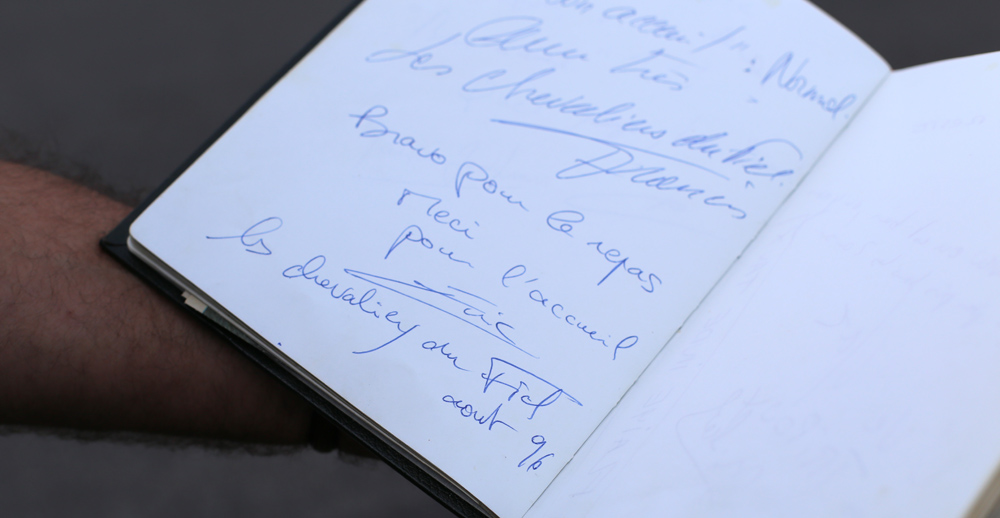 accueil : Normal.
Les Chevaliers du Fiel.
Francis
Bravo pour le repas
Merci
pour l'accueil
Eric
les chevaliers du Fiel
aout 96